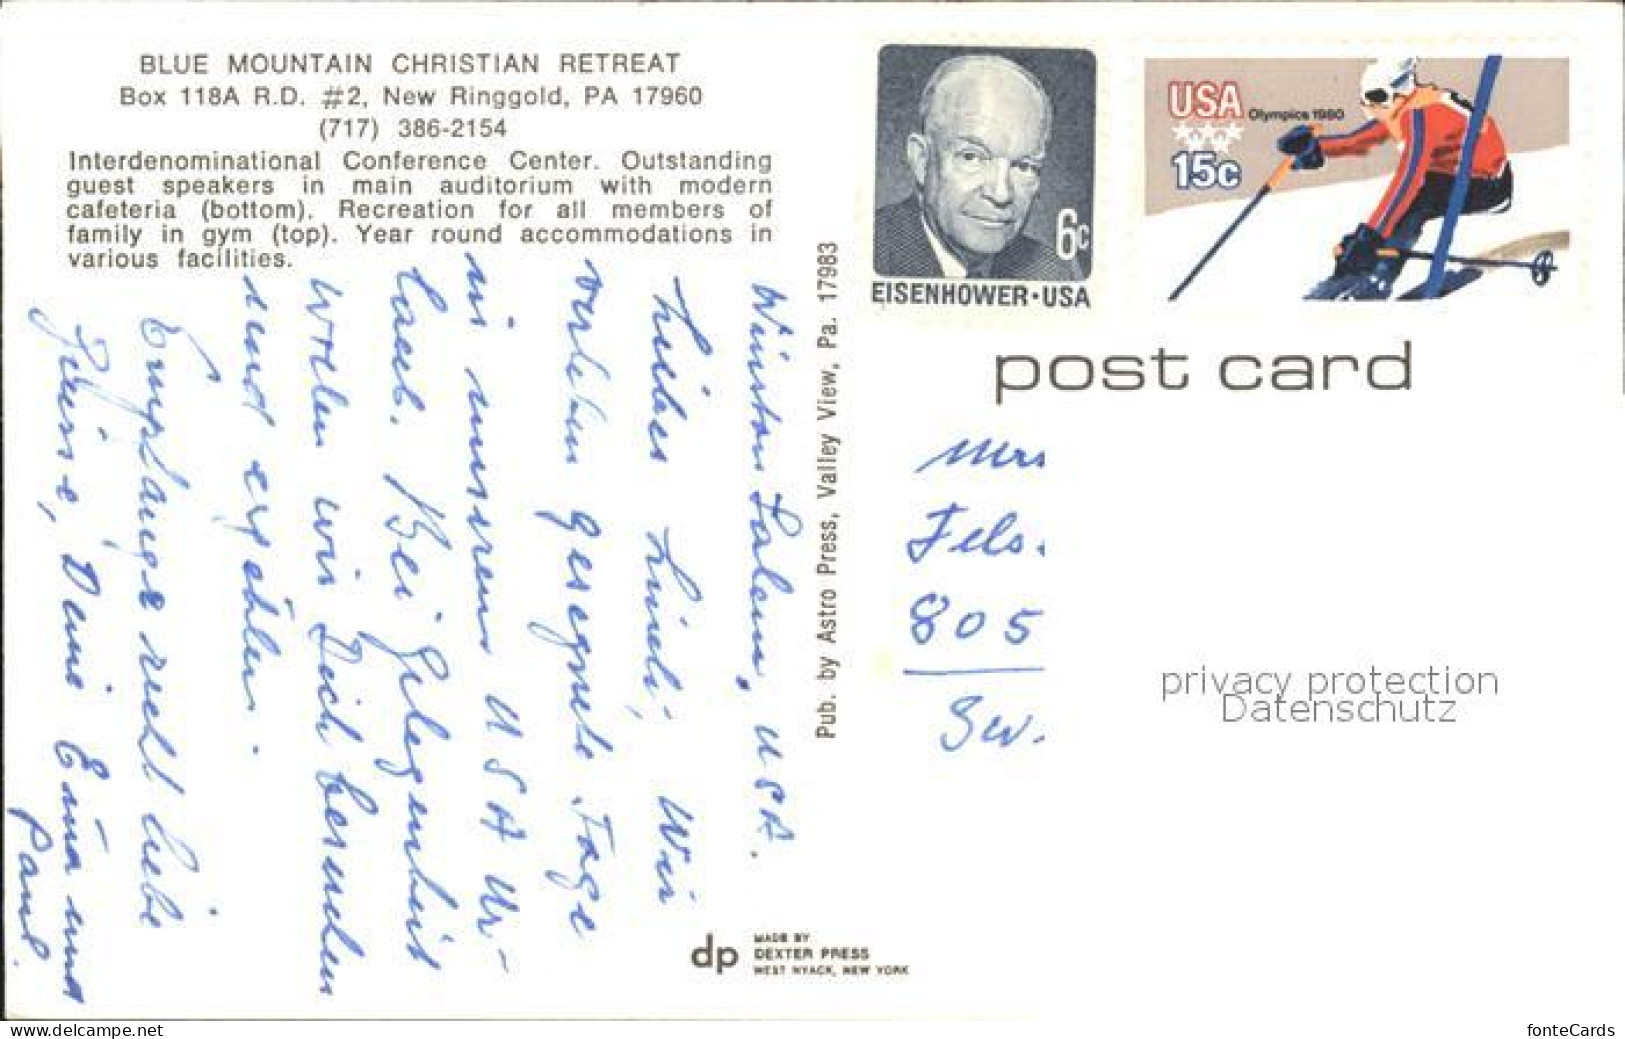 BLUE MOUNTAIN CHRISTIAN RETREAT
Box 118A R.D. #2, New Ringgold, PA 17960
(717) 386-2154
Interdenominational Conference Center. Outstanding
guest speakers in main auditorium with modern
cafeteria (bottom). Recreation for all members of
family in gym (top). Year round accommodations in
various facilities.
Winston Salem, USA.
Liebes Lineli, Wir
verleben gesegnete Tage
in unserem USA Ur-
laub. Bei Gelegenheit
wollen wir Dich besuchen
und erzählen.
Empfange recht liebe
Grüsse, Deine Erna und
Paul.
Pub. by Astro Press, Valley View, Pa. 17983
dp
MADE BY
DEXTER PRESS
WEST NYACK, NEW YORK
6c
EISENHOWER·USA
USA
Olympics 1980
15c
post card
Mrs
Fels.
805
Sw.
privacy protection
Datenschutz
www.delcampe.net
fonteCards